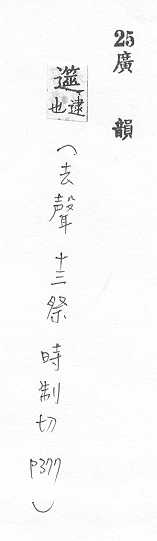 25 廣韻
遾 逮也 (去聲 十三祭 時制切 P377)